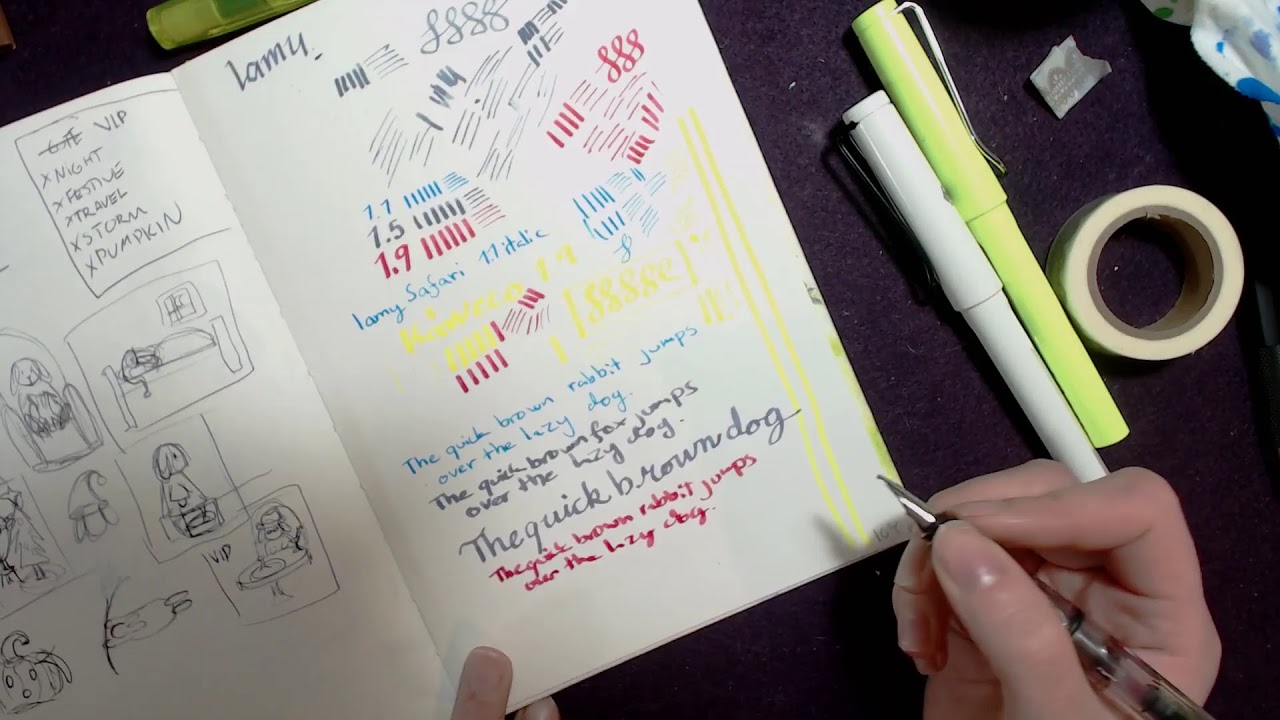 VIP
x NIGHT
x FESTIVE
x TRAVEL
x STORM
x PUMPKIN
VIP
lamy.
1.1
1.5
1.9
lamy Safari 1.1 italic
Kaweco 1.9
The quick brown rabbit jumps
over the lazy dog.
The quick brown fox jumps
over the lazy dog.
The quick brown dog
The quick brown rabbit jumps
over the lazy dog.